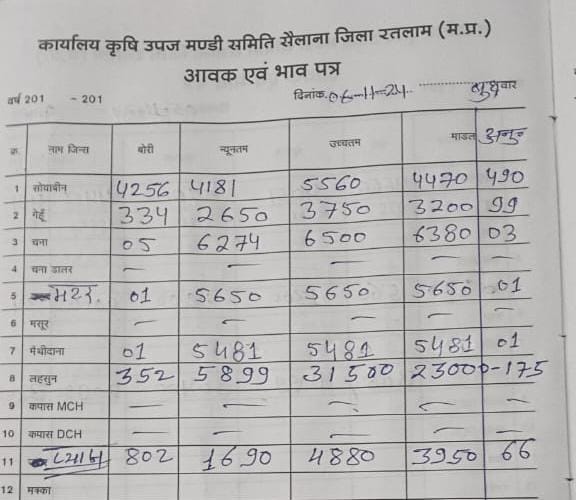 कार्यालय कृषि उपज मण्डी समिति सैलाना जिला रतलाम (म.प्र.)
आवक एवं भाव पत्र
वर्ष 201 - 201 दिनांक.06-11-24 बुधवार
क्र. नाम जिन्स बोरी न्यूनतम उच्चतम माडल अनु
1 सोयाबीन 4256 4181 5560 4470 490
2 गेहूँ 334 2650 3750 3200 99
3 चना 05 6274 6500 6380 03
4 चना डालर — — — — —
5 मटर 01 5650 5650 5650 01
6 मसूर — — — — —
7 मेथीदाना 01 5481 5481 5481 01
8 लहसुन 352 5899 31500 23000-175
9 कपास MCH — — — — —
10 कपास DCH — — — — —
11 प्याज 802 1690 4880 3950 66
12 मक्का